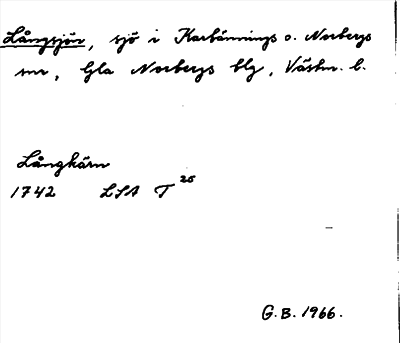 Långsjön, sjö i Karbennings o. Norbergs
snr, Gla Norbergs blg, Västm. l.
Långkärn
1742 LSA T 26
G.B. 1966.